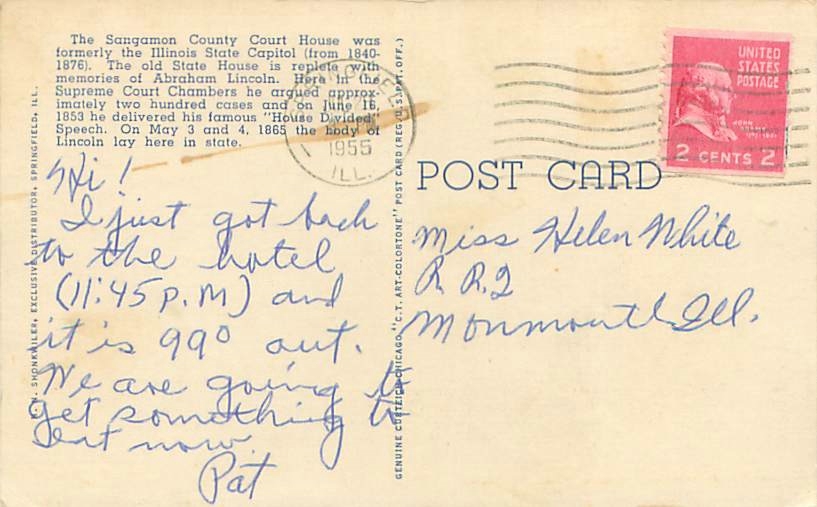 The Sangamon County Court House was
formerly the Illinois State Capitol (from 1840-
1876). The old State House is replete with
memories of Abraham Lincoln. Here in the
Supreme Court Chambers he argued approx-
imately two hundred cases and on June 16,
1853 he delivered his famous "House Divided"
Speech. On May 3 and 4, 1865 the body of
Lincoln lay here in state.
1955
ILL.
UNITED
STATES
POSTAGE
JOHN
2 CENTS 2
POST CARD
Hi!
I just got back
to the hotel
(11:45 P.M) and
it is 99° out.
We are going to
get something to
eat now.
Pat
Miss Helen White
R.R.2
Monmouth Ill.
SHONKWILER, EXCLUSIVE DISTRIBUTOR, SPRINGFIELD, ILL.
GENUINE CURTEICH-CHICAGO "C.T. ART-COLORTONE" POST CARD (REG. U.S. PAT. OFF.)